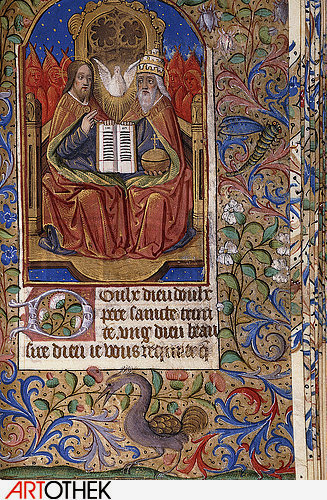 Doulx dieu doulx
pere saincte trini
te. ung dieu beau
sire dieu ie vous
ARTOTHEK